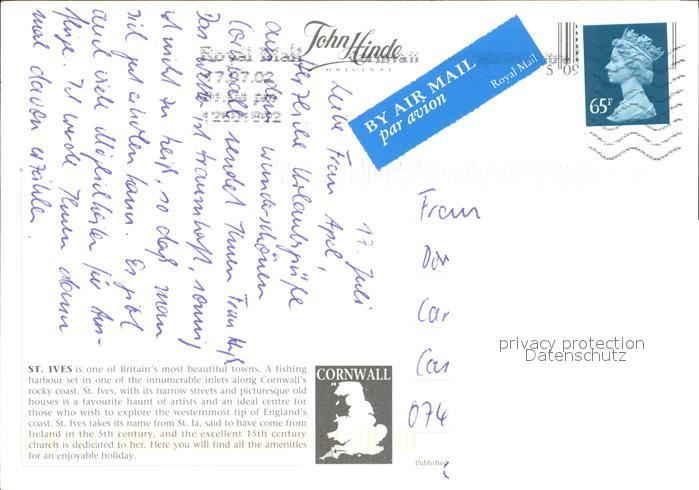 John Hinde
ORIGINAL
Royal Mail
17.07.02
BY AIR MAIL
par avion
Royal Mail
65P
17. Juli
Liebe Frau Apel,
herzliche Urlaubsgrüße
aus dem wunderschönen
Cornwall sendet Ihnen Frau
Das Wetter ist traumhaft, sonnig
ist nicht zu heiß, so daß man
sich gut erholen kann. Es gibt
auch viele Möglichkeiten für Aus-
flüge. Ich werde Ihnen dann
mal davon erzählen.
Frau
Car
Cas
074
privacy protection
Datenschutz
ST. IVES is one of Britain's most beautiful towns. A fishing
harbour set in one of the innumerable inlets along Cornwall's
rocky coast. St. Ives, with its narrow streets and picturesque old
houses is a favourite haunt of artists and an ideal centre for
those who wish to explore the westernmost tip of England's
coast. St. Ives takes its name from St. Ia, said to have come from
Ireland in the 5th century, and the excellent 15th century
church is dedicated to her. Here you will find all the amenities
for an enjoyable holiday.
CORNWALL
Published